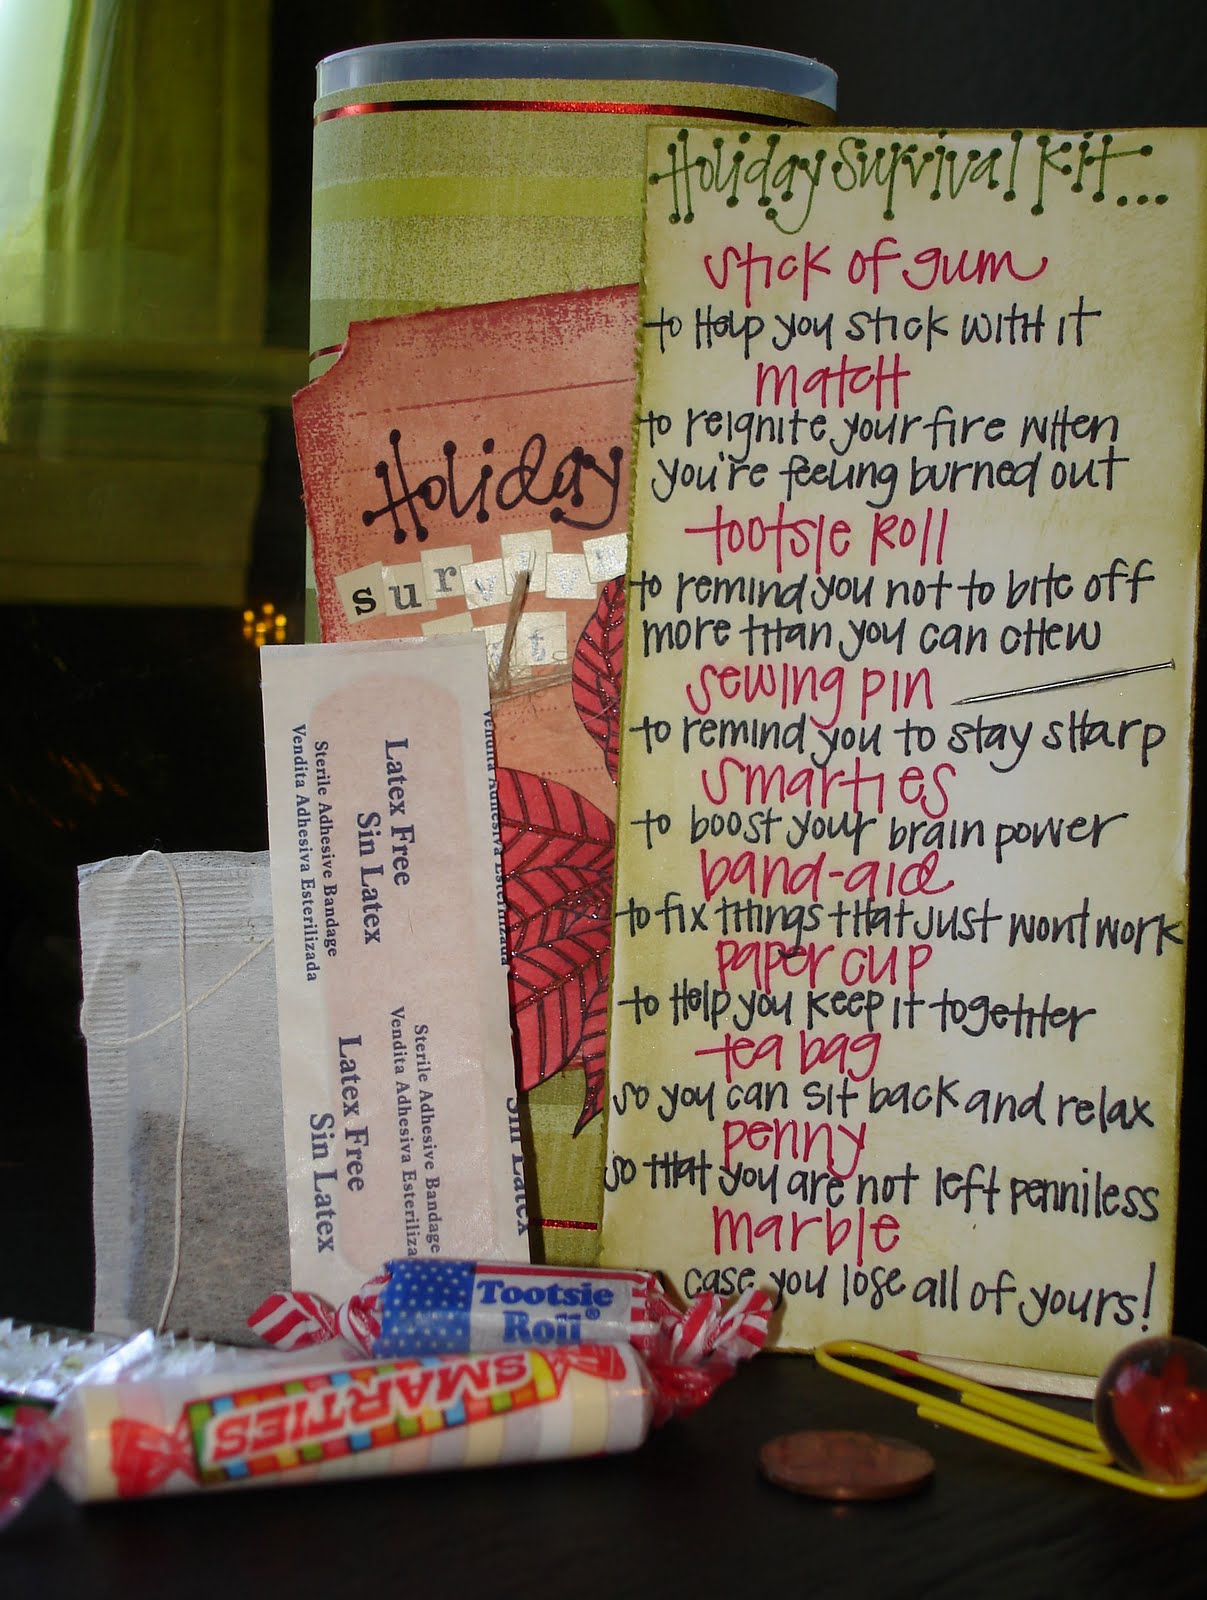 Holiday Survival Kit...
stick of gum
to help you stick with it
match
to reignite your fire when
you're feeling burned out
tootsie roll
to remind you not to bite off
more than you can chew
sewing pin
to remind you to stay sharp
smarties
to boost your brain power
band-aid
to fix things that just wont work
paper clip
to help you keep it together
tea bag
so you can sit back and relax
penny
so that you are not left penniless
marble
case you lose all of yours!
Holiday
Latex Free
Sin Latex
Sterile Adhesive Bandage
Vendita Adhesiva Esterilizada
Latex Free
Sin Latex
Sterile Adhesive Bandage
Vendita Adhesiva Esteriliza
Vendita Adhesiva Esterilizada
Sin Latex
Tootsie
Roll®
SMARTIES